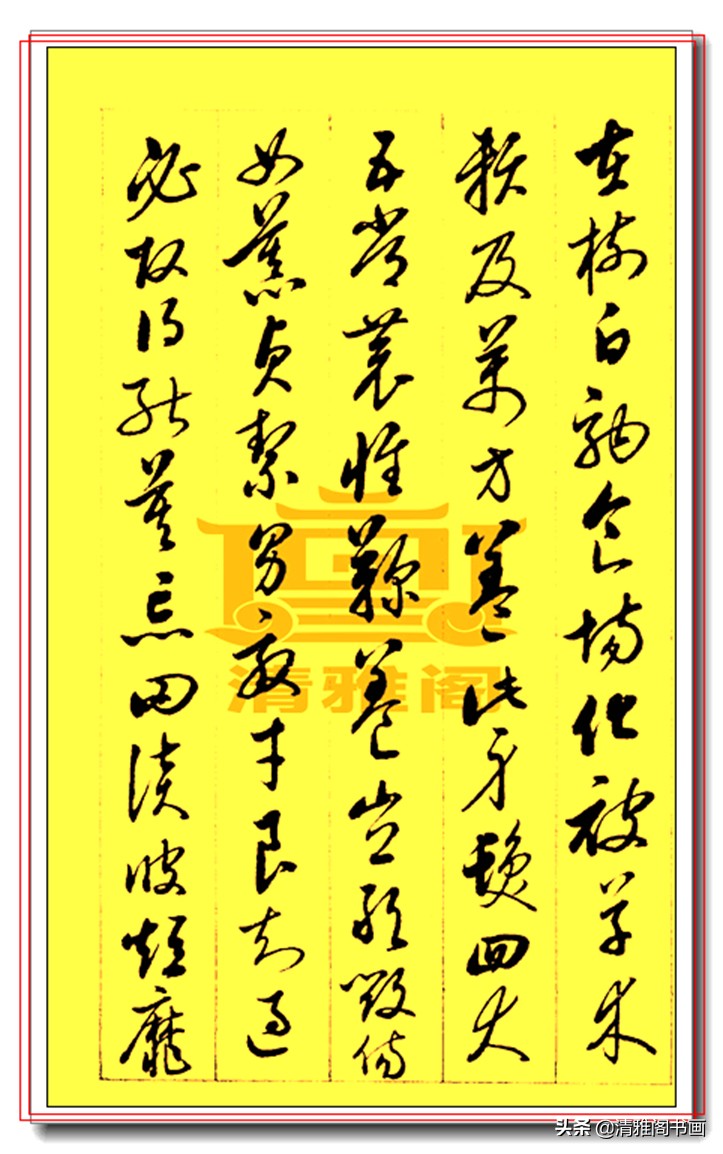 在樹白駒食場化被草木
賴及萬方蓋此身髮四大
五常恭惟鞠養豈敢毀傷
女慕貞絜男效才良知過
必改得能莫忘罔談彼短靡
清雅阁
头条 @清雅阁书画